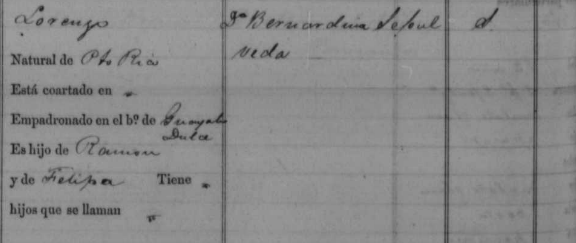 Lorenzo Dª Bernardina Sepul S.
Natural de Pto Rico veda
Está coartado en "
Empadronado en el bº. de Guayabo
Dulce
Es hijo de Ramon
y de Felipa Tiene "
hijos que se llaman "